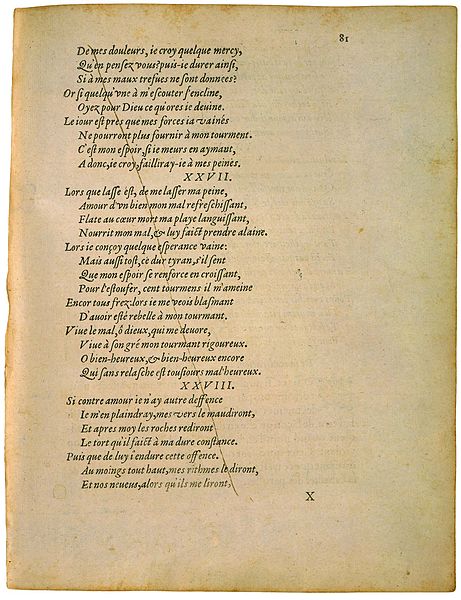 81
De mes douleurs, ie croy quelque mercy,
Qu'en pensez vous? puis-ie durer ainsi,
Si à mes maux trefues ne sont donnees?
Or si quelqu'vne à m'escouter s'encline,
Oyez pour Dieu ce qu'ores ie deuine.
Le iour est pres que mes forces ia vaines
Ne pourront plus fournir à mon tourment.
C'est mon espoir, si ie meurs en aymant,
A donc, ie croy, failliray-ie à mes peines.
XXVII.
Lors que lasse est, de me lasser ma peine,
Amour d'vn bien mon mal refreschissant,
Flate au cœur mort ma playe languissant,
Nourrit mon mal, & luy faict prendre alaine.
Lors ie conçoy quelque esperance vaine:
Mais aussi tost, ce dur tyran, s'il sent
Que mon espoir se renforce en croissant,
Pour l'estoufer, cent tourmens il m'ameine
Encor tous frez: lors ie me veois blasmant
D'auoir esté rebelle à mon tourmant.
Viue le mal, ô dieux, qui me deuore,
Viue à son gré mon tourmant rigoureux.
O bien-heureux, & bien-heureux encore
Qui sans relasche est tousiours mal'heureux.
XXVIII.
Si contre amour ie n'ay autre deffence
Ie m'en plaindray, mes vers le maudiront,
Et apres moy les roches rediront
Le tort qu'il faict à ma dure constance.
Puis que de luy i'endure cette offence.
Au moings tout haut, mes rithmes le diront,
Et nos neueus, alors qu'ils me liront,
X